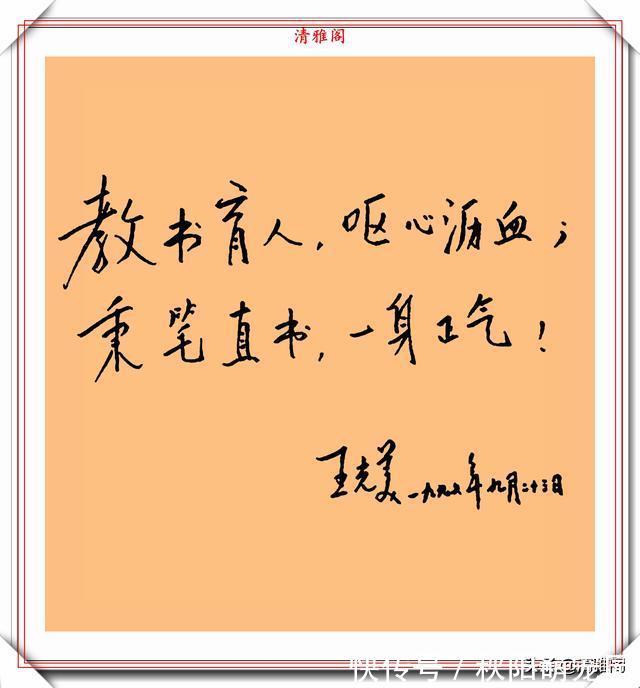 清雅阁
教书育人，呕心沥血；
秉笔直书，一身正气！
王克美 一九九六年九月二十三日
快传号 / 秋阳萌宠